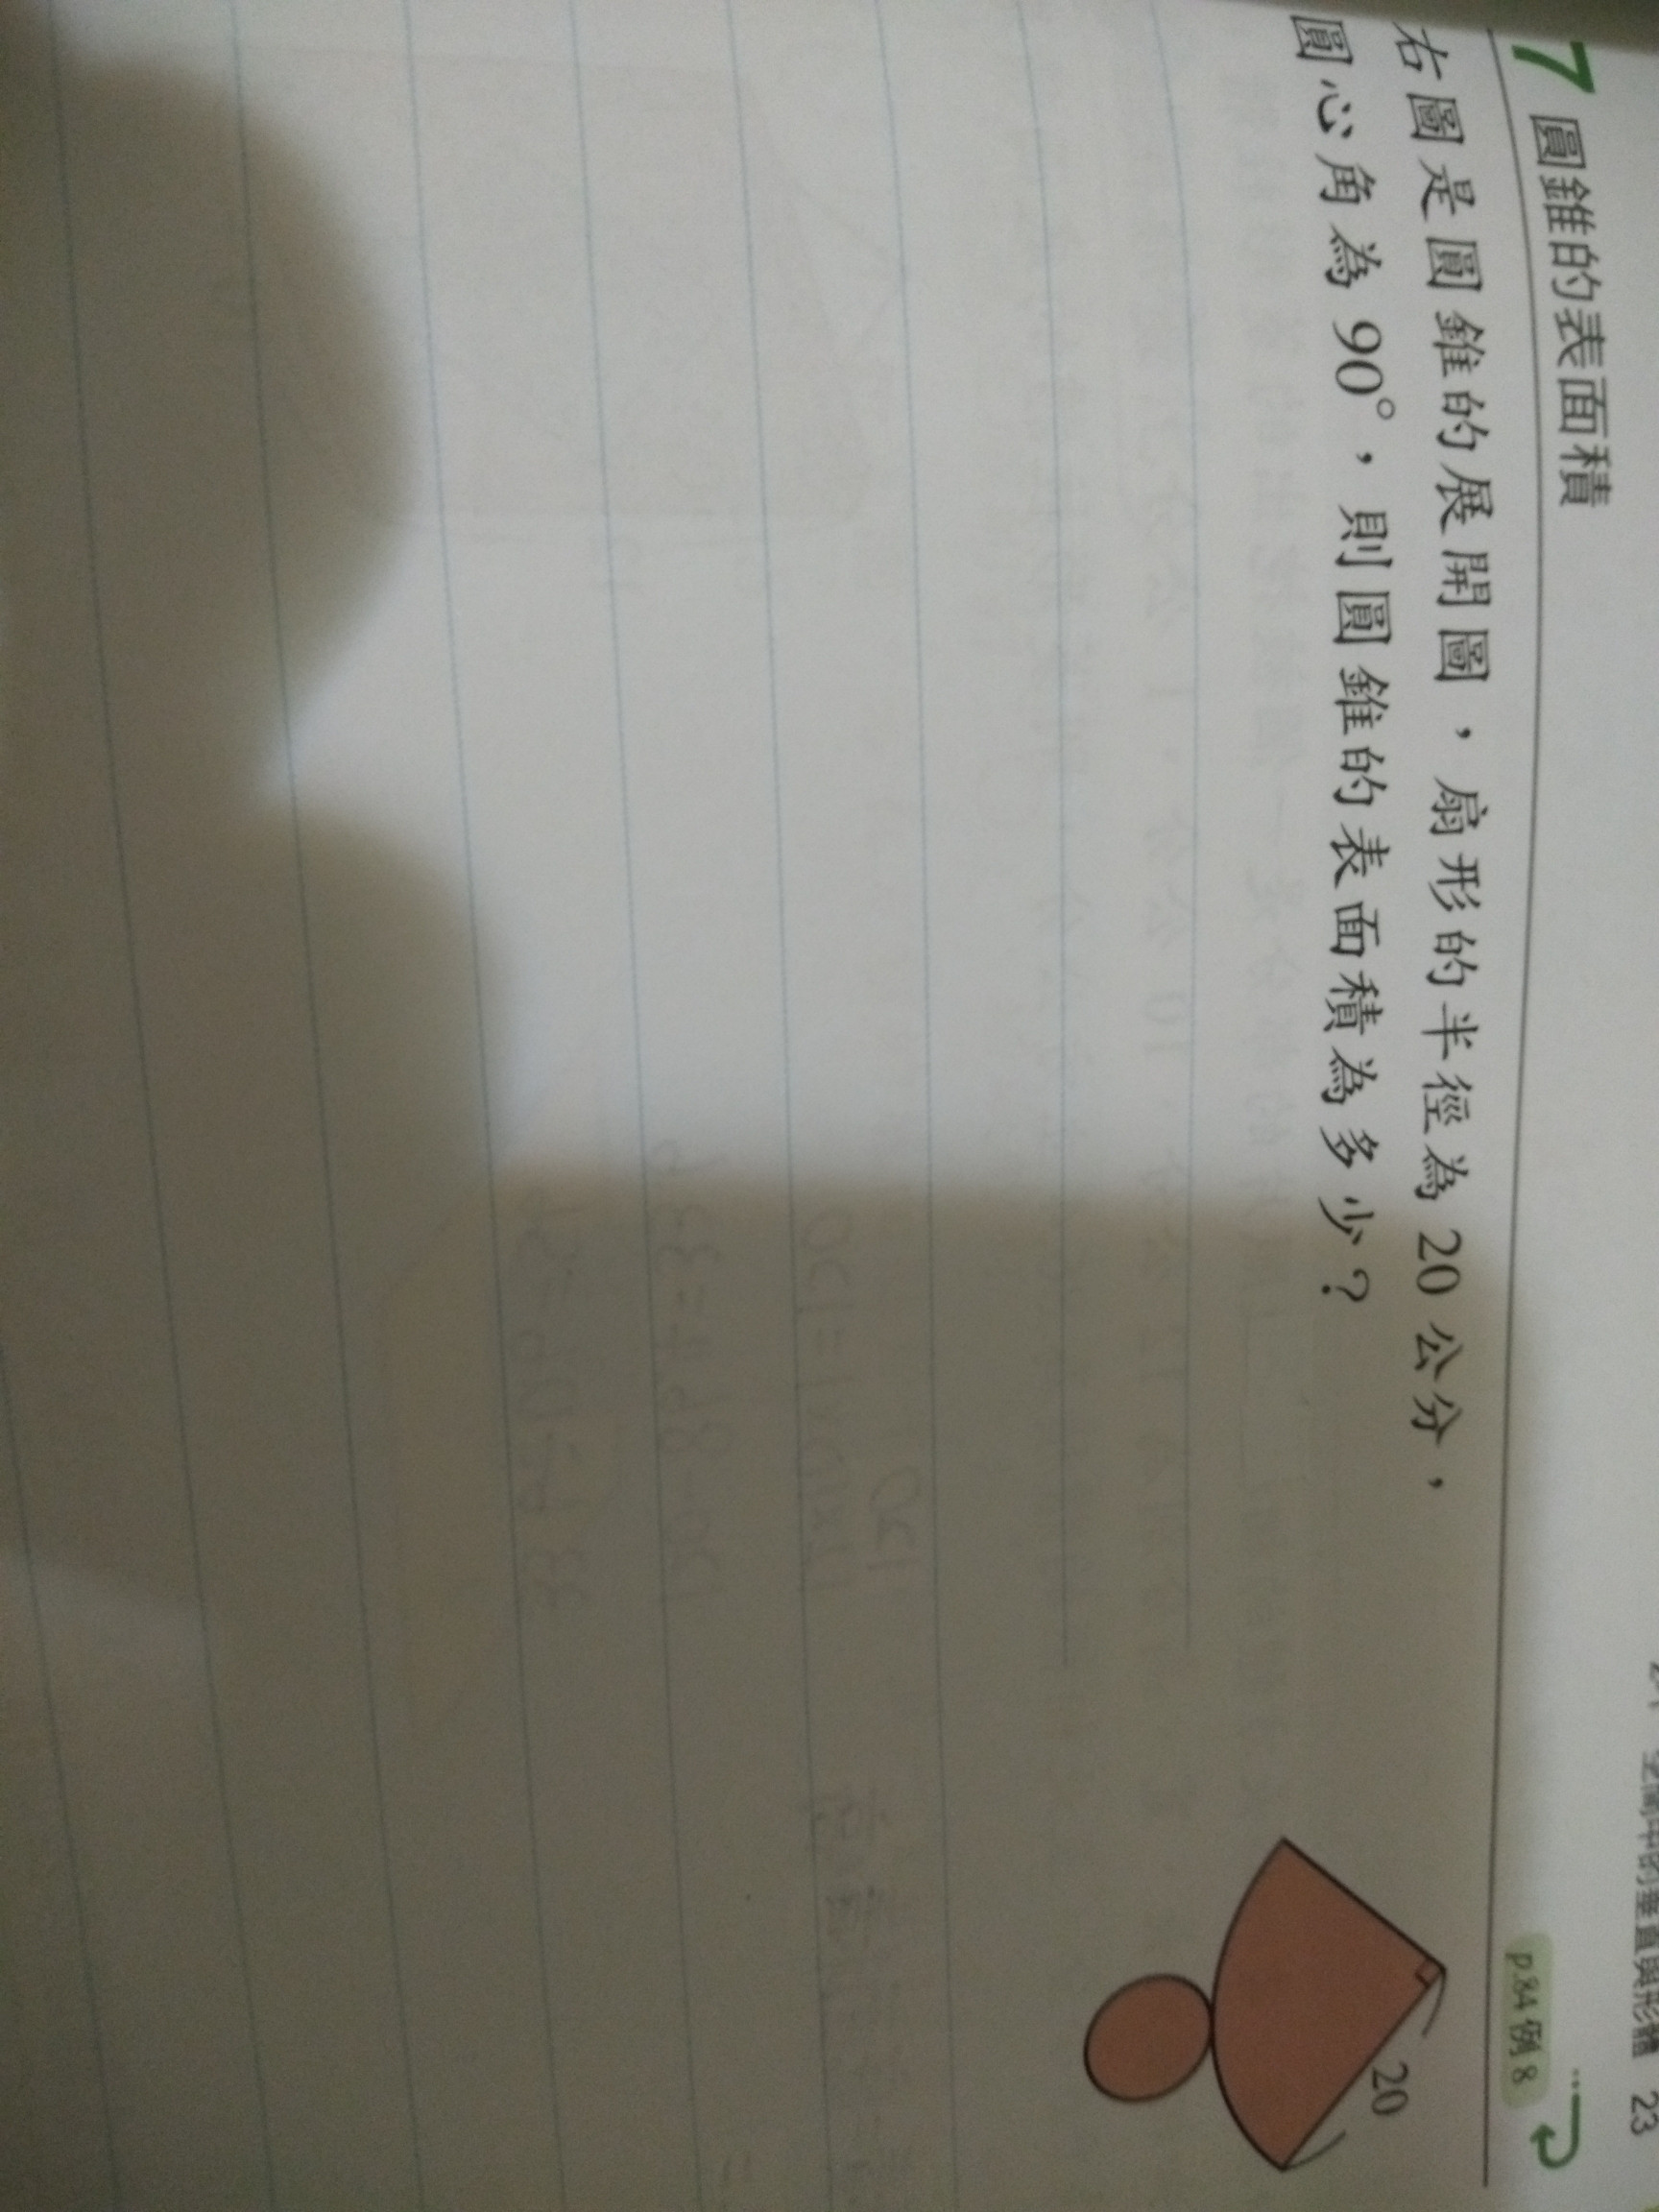 空間中的垂直與形體 23
7 圓錐的表面積
p.84 例 8
右圖是圓錐的展開圖，扇形的半徑為 20 公分，
圓心角為 90°，則圓錐的表面積為多少？
20